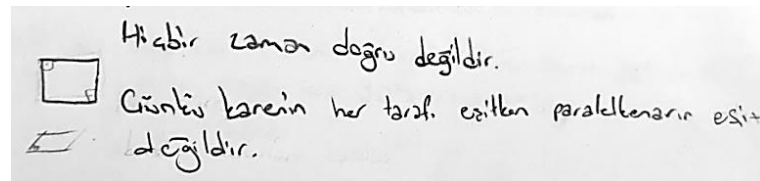 Hiçbir zaman doğru değildir.
Çünkü karenin her tarafı eşitken paralelkenarın eşit
değildir.